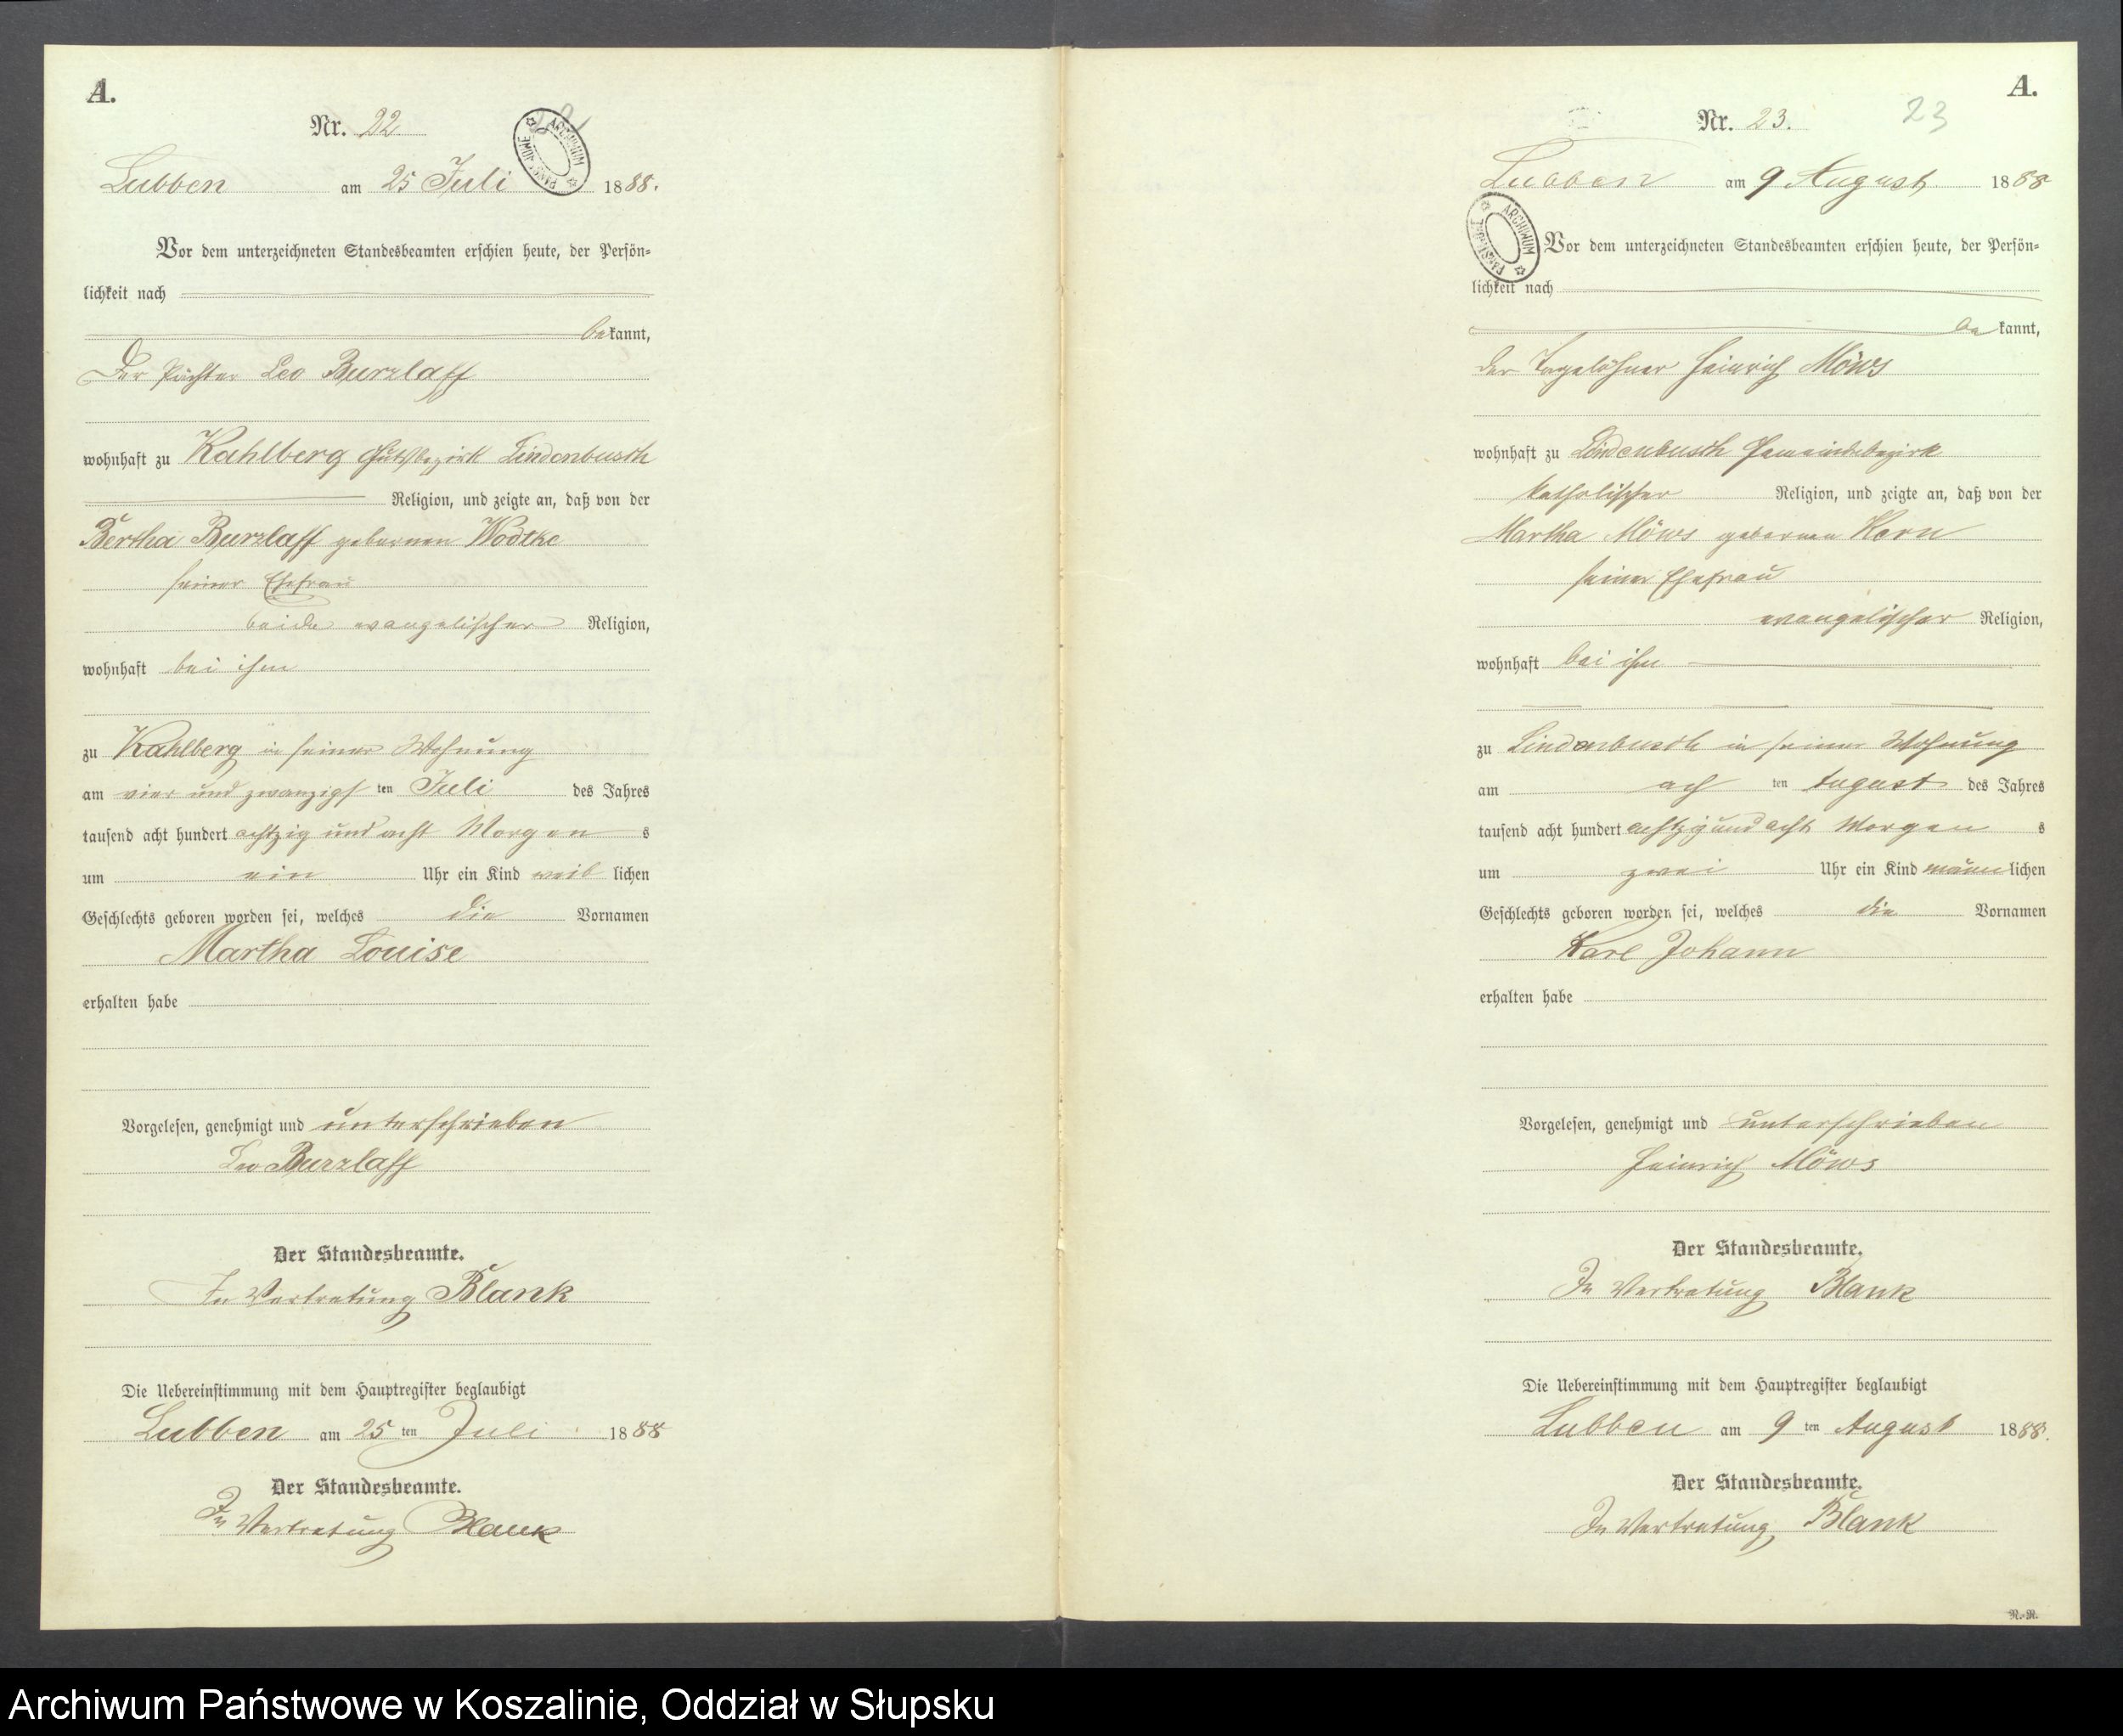 A.
Nr. 22
Lubben am 25 Juli 1888.
Vor dem unterzeichneten Standesbeamten erschien heute, der Persön=
lichkeit nach
bekannt,
Der Pächter Leo Burzlaff
wohnhaft zu Kahlberg Gutsbezirk Lindenbusch
Religion, und zeigte an, daß von der
Bertha Burzlaff gebornen Wodtke
seiner Ehefrau
beide evangelischer Religion,
wohnhaft bei ihm
zu Kahlberg in seiner Wohnung
am vier und zwanzigsten Juli des Jahres
tausend acht hundert achtzig und acht Morgens
um ein Uhr ein Kind weiblichen
Geschlechts geboren worden sei, welches die Vornamen
Martha Louise
erhalten habe
Vorgelesen, genehmigt und unterschrieben
Leo Burzlaff
Der Standesbeamte.
In Vertretung Blank
Die Uebereinstimmung mit dem Hauptregister beglaubigt
Lubben am 25 ten Juli 1888
Der Standesbeamte.
In Vertretung Blank
A.
Nr. 23. 23
Lubben am 9 August 1888
ARCHIWUM PAŃSTWOWE
Vor dem unterzeichneten Standesbeamten erschien heute, der Persön=
lichkeit nach
bekannt,
der Tagelöhner Heinrich Möws
wohnhaft zu Lindenbusch Gemeindebezirk
katholischer Religion, und zeigte an, daß von der
Martha Möws gebornen Kern
seiner Ehefrau
evangelischer Religion,
wohnhaft bei ihm
zu Lindenbusch in seiner Wohnung
am achten August des Jahres
tausend acht hundert achtzig und acht Morgens
um zwei Uhr ein Kind männlichen
Geschlechts geboren worden sei, welches die Vornamen
Karl Johann
erhalten habe
Vorgelesen, genehmigt und unterschrieben
Heinrich Möws
Der Standesbeamte.
In Vertretung Blank
Die Uebereinstimmung mit dem Hauptregister beglaubigt
Lubben am 9 ten August 1888.
Der Standesbeamte.
In Vertretung Blank
N.-R.
Archiwum Państwowe w Koszalinie, Oddział w Słupsku